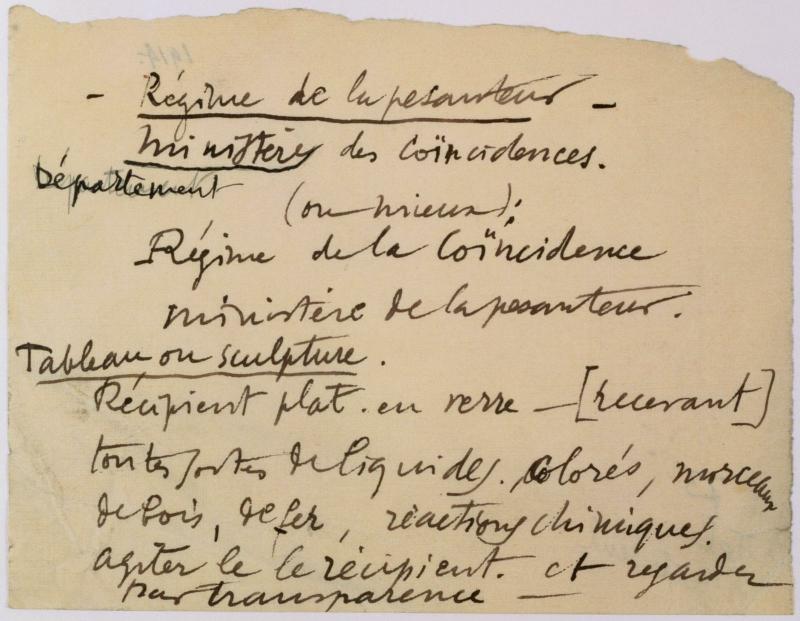 1914.
- Régime de la pesanteur -
Ministère des Coïncidences.
Département
(ou mieux):
Régime de la Coïncidence
ministère de la pesanteur.
Tableau ou sculpture.
Récipient plat. en verre — [recevant]
toutes sortes de liquides. Colorés, morceaux
de bois, de fer, réactions chimiques.
agiter le le récipient. et regarder
par transparence —